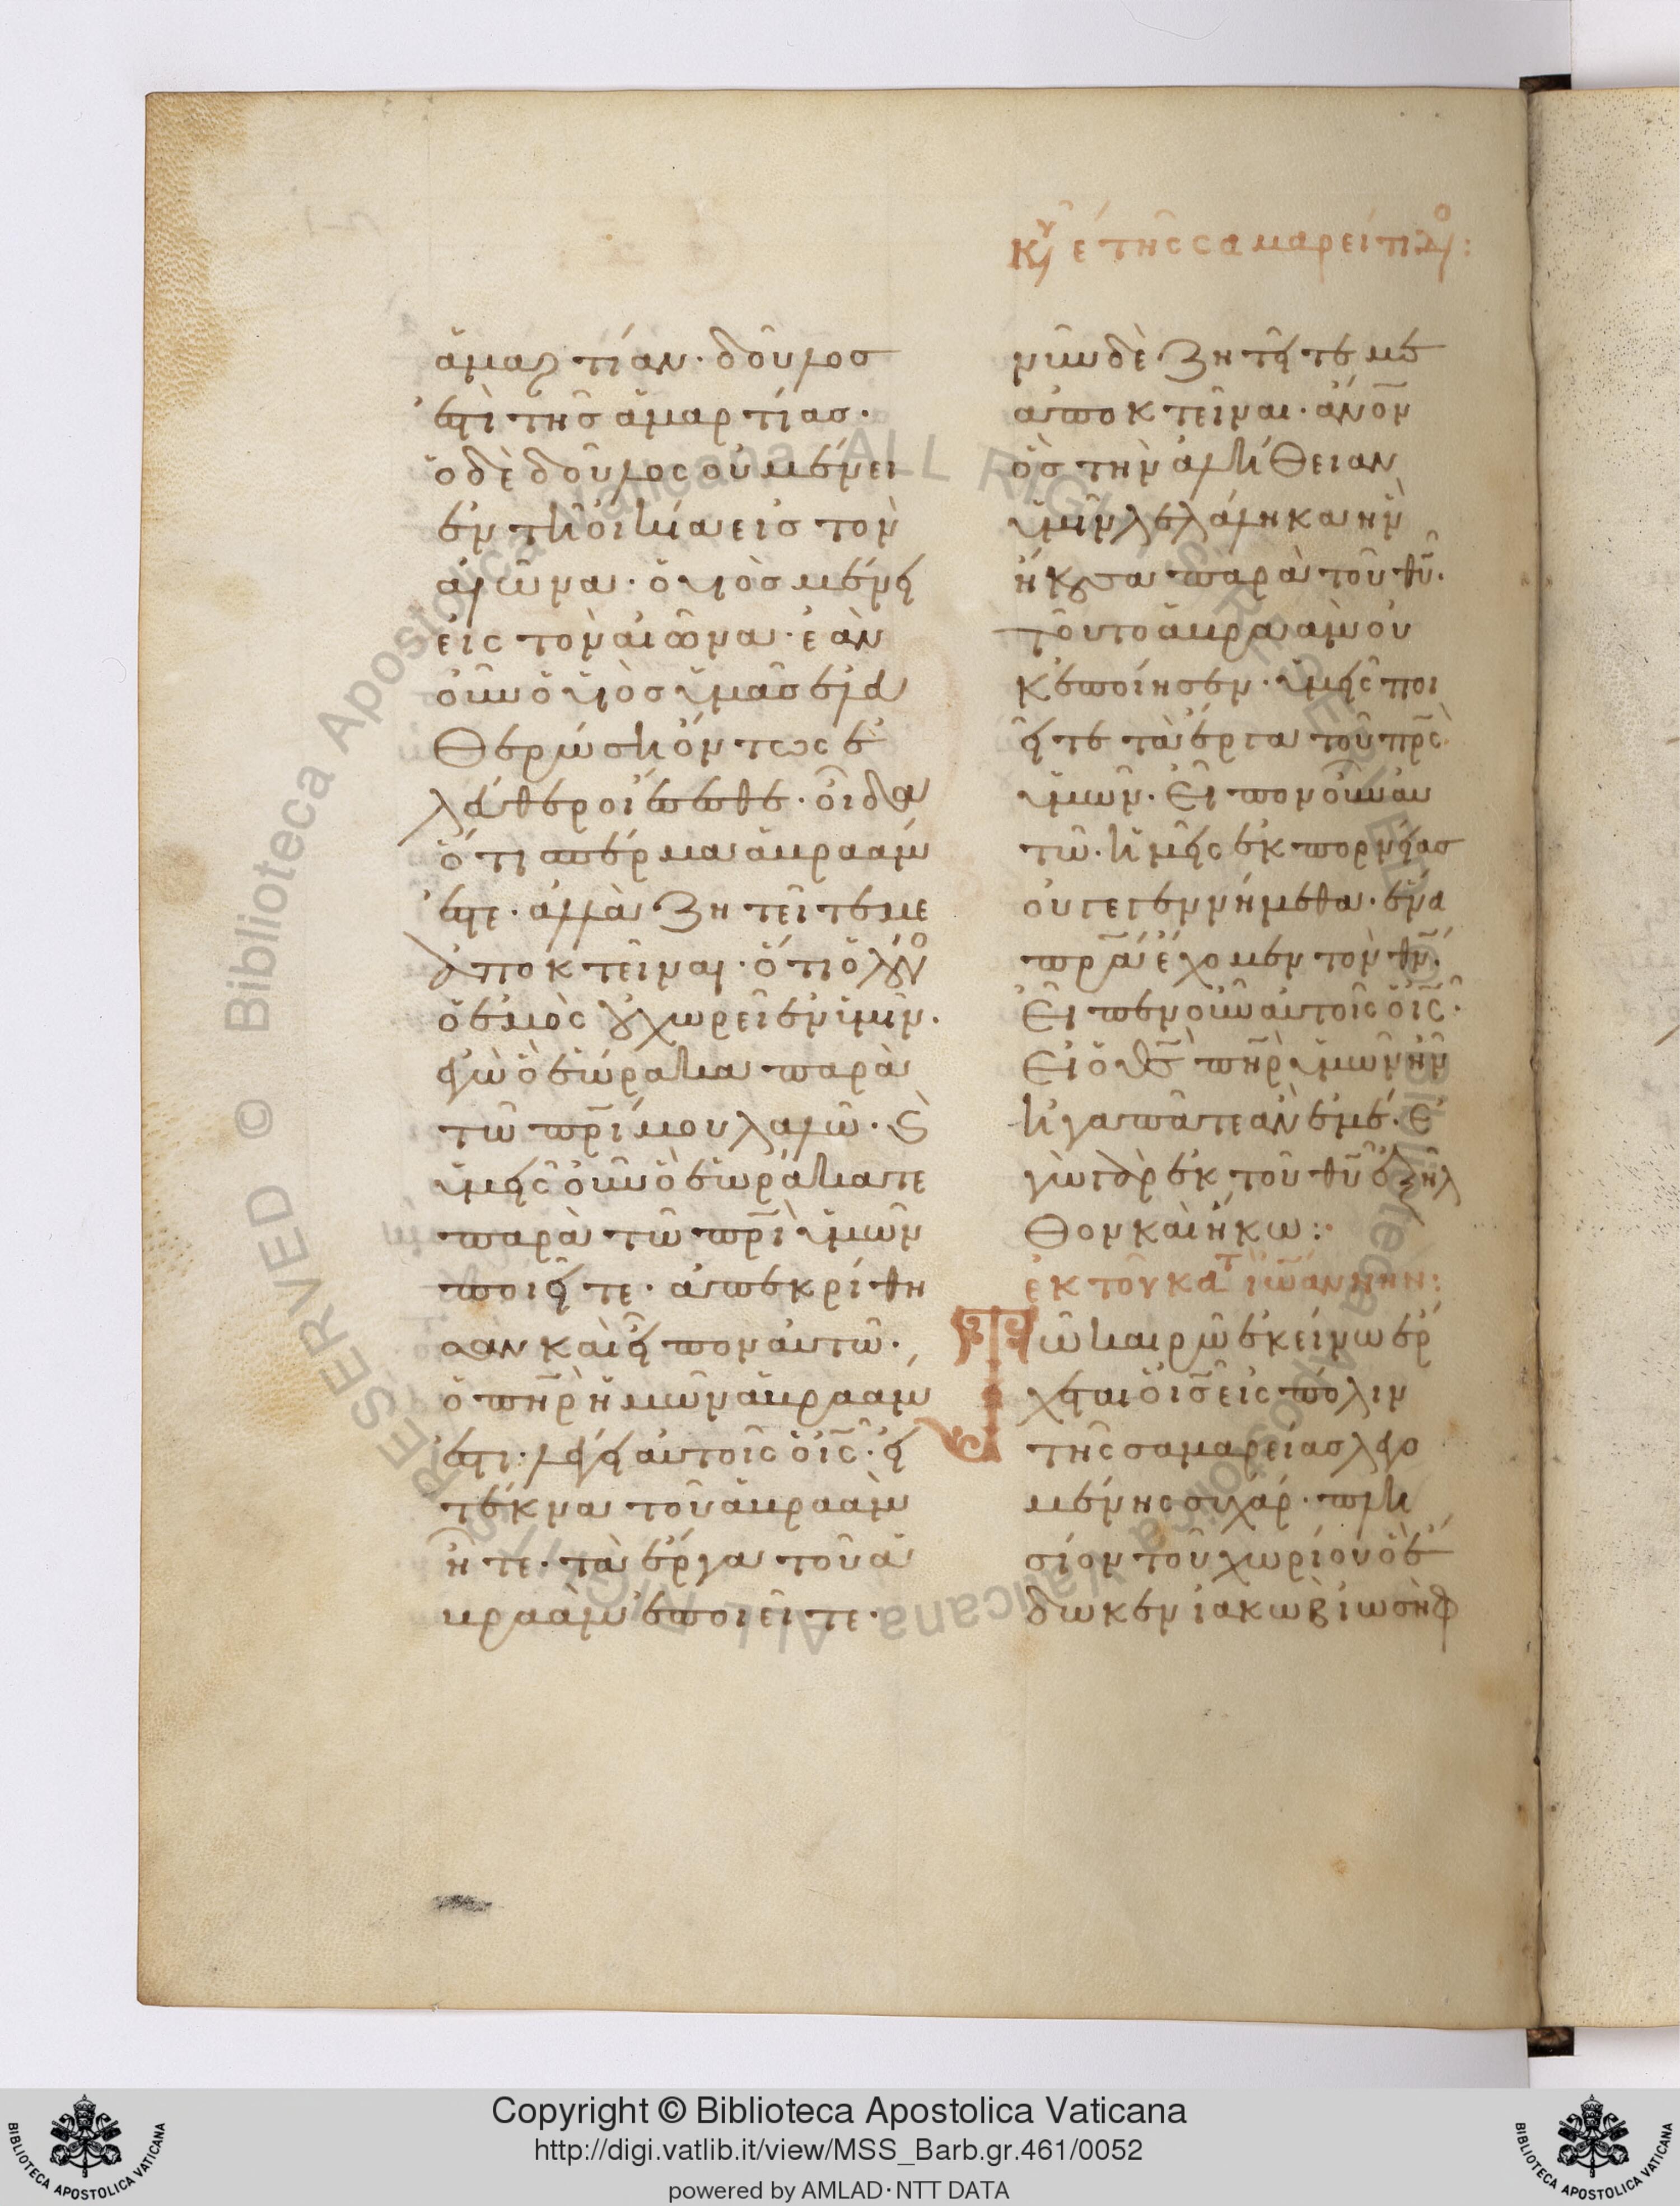 Κυ ε τῆς σαμαρείτιδο:
ἁμαρτίαν· δοῦλος
ἐστὶ τῆς ἁμαρτίας·
ὁ δὲ δοῦλος οὐ μένει
ἐν τῆ οἰκία εἰς τὸν
αἰῶνα· ὁ υἱὸς μένει
εἰς τὸν αἰῶνα· ἐὰν
οὖν ὁ υἱὸς ὑμᾶς ἐλευ
θερώση ὄντως ἐ
λεύθεροι ἔσεσθε· οἶδα
ὅτι σπέρμα ἀβραάμ
ἐστε· ἀλλὰ ζητεῖτέ με
ἀποκτεῖναι· ὅτι ὁ λόγο
ὁ ἐμὸς οὐ χωρεῖ ἐν ὑμῖν·
ἐγὼ ὃ ἑώρακα παρὰ
τῶ πρι μου λαλῶ· καὶ
ὑμεῖς οὖν ὃ ἑωράκατε
παρὰ τῶ πρι ὑμῶν
ποιεῖτε· ἀπεκρίθη
σαν καὶ εἶπον αὐτῶ·
ὁ πηρ ἡμῶν ἀβραάμ
ἐστι· λέγει αὐτοῖς ὁ ις· εἰ
τέκνα τοῦ ἀβραὰμ
ἦτε· τὰ ἔργα τοῦ ἀ
βραὰμ ἐποιεῖτε·
νῦν δὲ ζητεῖτέ με
ἀποκτεῖναι· ανον
ὃς τὴν ἀλήθειαν
ὑμῖν λελάληκα ἣν
ἤκουσα παρὰ τοῦ θυ·
τοῦτο ἀβραὰμ οὐ
κ ἐποίησεν· ὑμεῖς ποι
εῖτε τὰ ἔργα τοῦ πρς
ὑμῶν· Εἶπον οὖν αὐ
τῶ· ἡμεῖς ἐκ πορνείας
οὐ γεγεννήμεθα· ἕνα
πρα ἔχομεν τὸν θν·
Εἶπεν οὖν αὐτοῖς ὁ ις·
Εἰ ὁ θς πηρ ὑμῶν ἦν
ἠγαπᾶτε ἂν ἐμέ· Ἐ
γὼ γὰρ ἐκ τοῦ θυ ἐξῆλ
θον καὶ ἥκω:·
ἐκ τοῦ κατ ἰωαννην:
Τῶ καιρῶ ἐκείνω ἔρ
χεται ὁ ις εἰς πόλιν
τῆς σαμαρείας λεγο
μένης συχάρ· πλη
σίον τοῦ χωρίου ὃ ἔ
δωκεν ἰακὼβ ἰωσὴφ
Copyright © Biblioteca Apostolica Vaticana
http://digi.vatlib.it/view/MSS_Barb.gr.461/0052
powered by AMLAD·NTT DATA